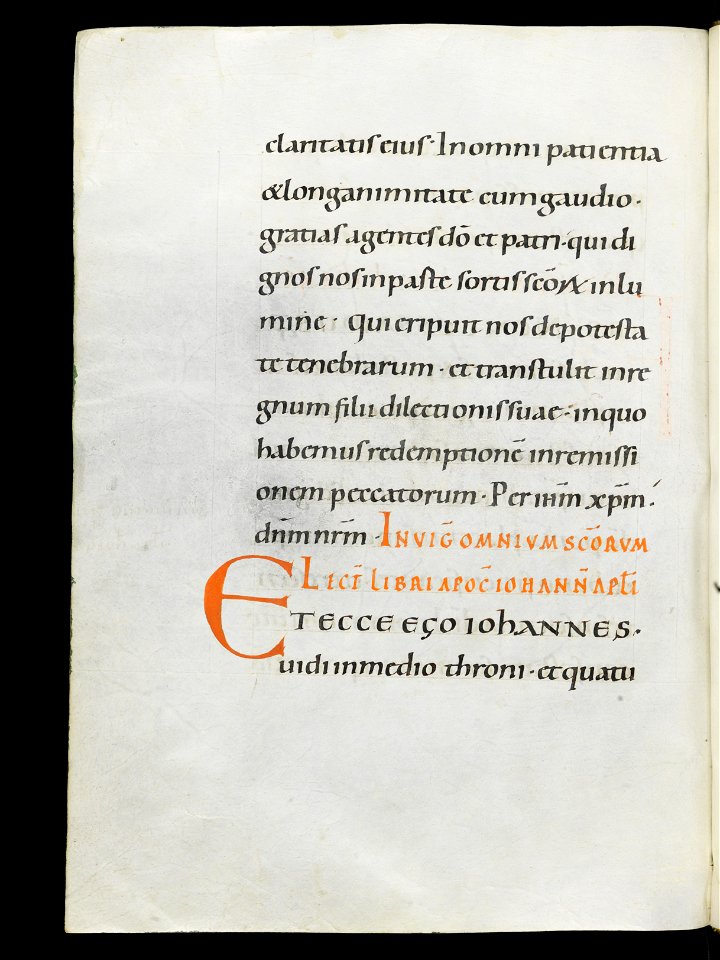 claritatis eius· In omni patientia
&longanimitate cum gaudio·
gratias agentes dō et patri· qui di
gnos nos in parte sortis scōꝝ in lu
mine· Qui eripuit nos de potesta
te tenebrarum· et transtulit in re
gnum filii dilectionis suae· in quo
habemus redemptionē in remissi
onem peccatorum· Per ihm̄ xpm̄·
dnm̄ nrm̄· IN VIG̅ OMNIVM SC̅ORVM
LECT̅ LIBRI APOC̅ IOHANN̅ APL̅I
ET ECCE EGO IOHANNES·
uidi in medio throni· et quatu